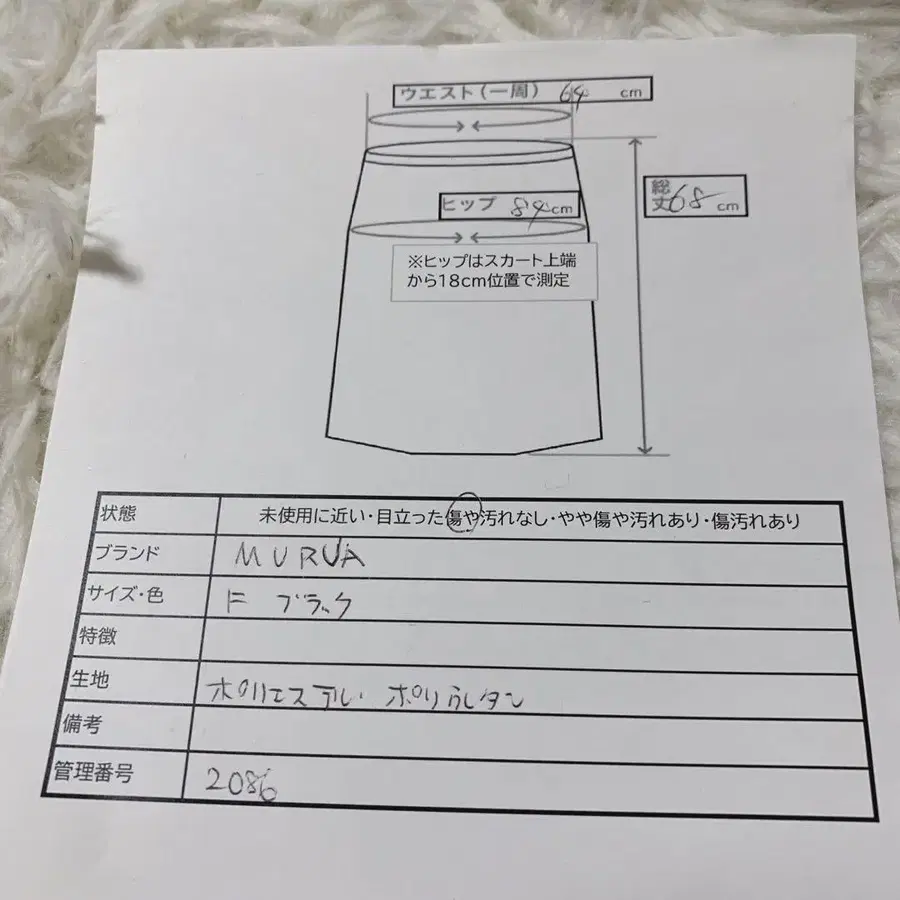 ウエスト(一周) 64 cm
総丈 68 cm
ヒップ 84 cm
※ヒップはスカート上端
から18cm位置で測定
状態 未使用に近い・目立った傷や汚れなし・やや傷や汚れあり・傷汚れあり
ブランド MURUA
サイズ・色 F ブラック
特徴
生地 ポリエステル ポリウレタン
備考
管理番号 2086